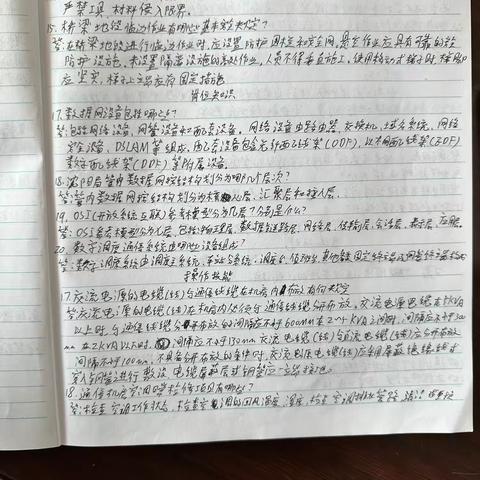 严禁工具、材料侵入限界。
15. 桥梁地段临边作业有哪些基本安全规定?
答:在桥梁地段进行临边作业时,应设置防护围栏和安全网,悬空作业应具有可靠的安全
防护设施。未设置隔离设施的 作业,人员不得 施工,使用移动式梯子时,梯脚
应坚实,梯子上端应有固定措施
岗位知识
17. 数据网设备包括哪些?
答:包括网络设备、网管设备和配套设备。网络设备由路由器、交换机、域名系统、网络
安全设备、DSLAM等组成,配套设备包含光纤配线架(ODF)、以太网配线架(EDF)
数字配线架(DDF)等附属设备。
18. 沈阳局管内数据网络结构划分为哪几个层次?
答:管内数据网络结构划分为核心层、汇聚层和接入层。
19. OSI(开放系统互联)参考模型分为几层?分别是什么?
答:OSI参考模型分为七层,包括物理层、数据链路层、网络层、传输层、会话层、表示层、应用层
20. 数字调度通信系统由哪些设备组成?
答:数字调度系统由调度主系统、车站分系统、调度台、值班台、其他 固定终端及网管终端
操作技能
17. 交流电源的电缆(线)与通信线缆在机房内布放有何规定
答:交流电源的电缆(线)在机房内必须与通信线缆分开布放。交流电源电缆在5KVA
以上时,与通信线缆分开布放的间隔应不小于600mm 在2~5KVA之间时,间隔应不小于300
mm 在2KVA以下时,间隔应不小于130mm 交流电缆(线)与直流电缆(线)应分开布放
间隔不小于100mm,不具备分开布放的条件时,交流电源电缆(线)应采用屏蔽绝缘线或
穿入钢管进行敷设,电缆屏蔽层或钢管应一点接地。
18. 通信机房空调日常检修项目有哪些?
答:检查空调工作状态,检查空调的回风温度、湿度,检查空调排水管路,清洁